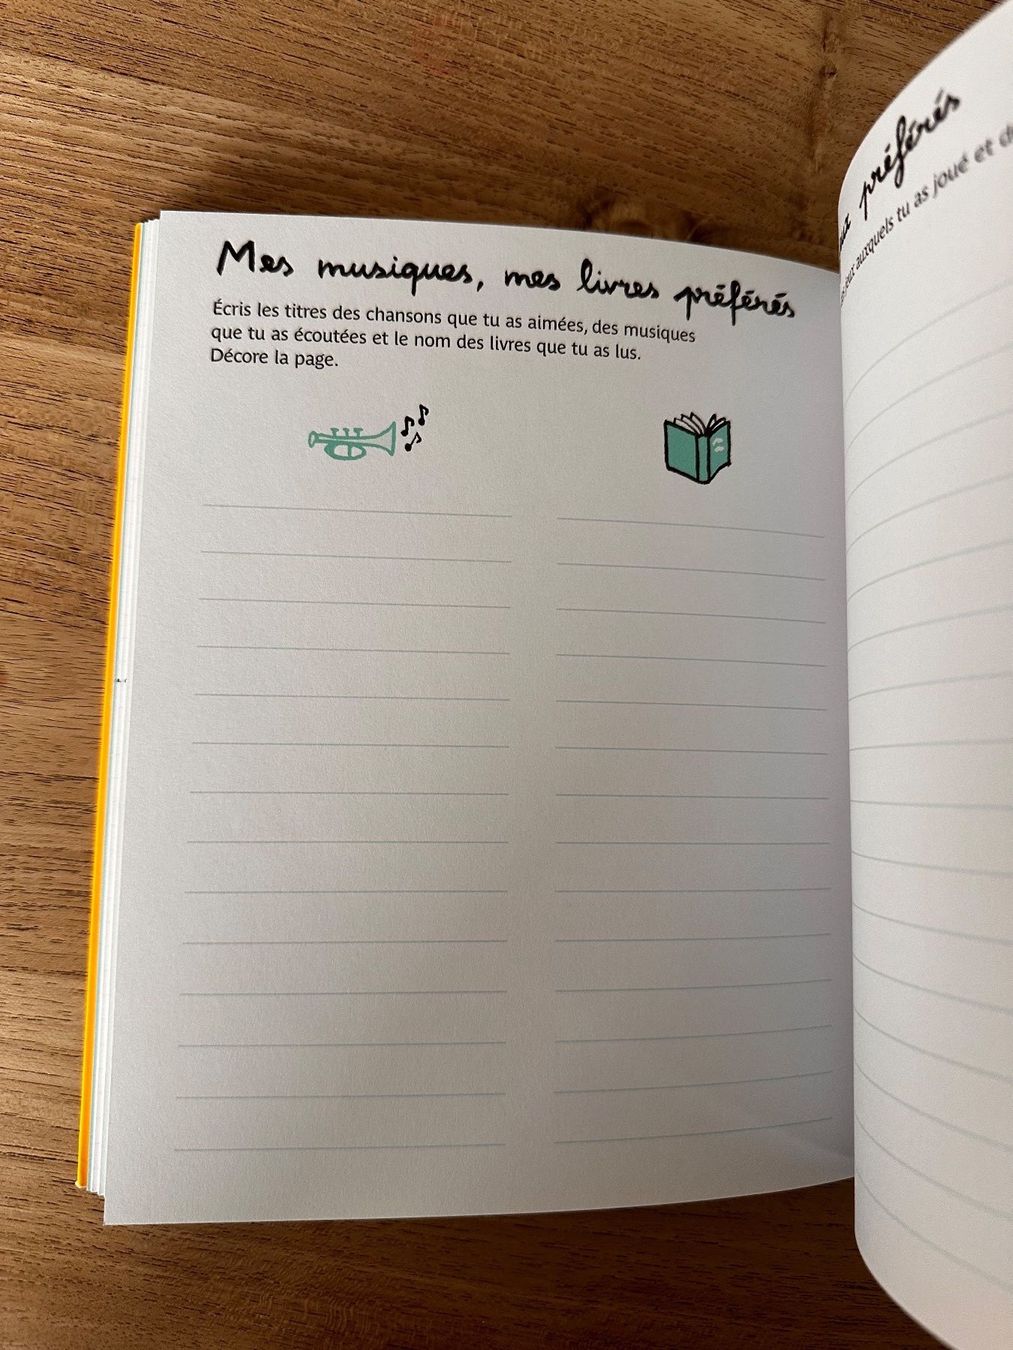 Mes musiques, mes livres préférés
Écris les titres des chansons que tu as aimées, des musiques
que tu as écoutées et le nom des livres que tu as lus.
Décore la page.
préférés
jeux auxquels tu as joué et